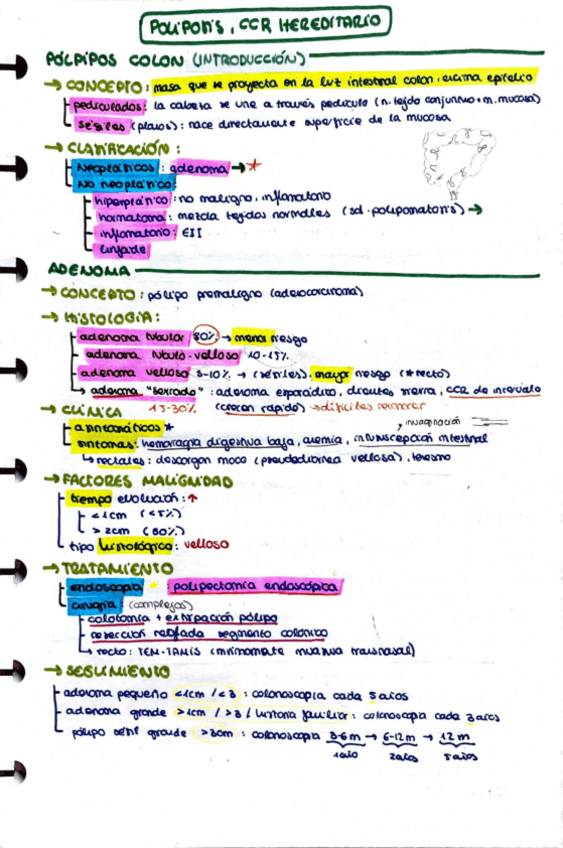 POLIPOSIS, CCR HEREDITARIO
PÓLPIPOS COLON (INTRODUCCIÓN)
→ CONCEPTO: masa que se proyecta en la luz intestinal colon, encima epitelio
pediculados: la cabeza se une a través pedículo (n. tejido conjuntivo + m. mucosa)
sésiles (planos): nace directamente superficie de la mucosa
→ CLASIFICACIÓN:
Neoplásicos: adenoma → *
No neoplásico:
hiperplásico: no maligno, inflamatorio
hamartoma: mezcla tejidos normales (sd. polipomatosis) →
inflamatorio: EII
linfoide
ADENOMA
→ CONCEPTO: pólipo premaligno (adenocarcinoma)
→ HISTOLOGÍA:
adenoma tubular 80% → menor riesgo
adenoma túbulo-velloso 10-15%
adenoma velloso 5-10% → (sésiles). mayor riesgo (* recto)
↳ adenoma "serrado": adenoma esporádico, dientes sierra, CCR de intervalo
15-30% (crecen rápido) → difíciles remover
→ CLÍNICA
asintomáticos *
, invaginación
síntomas: hemorragia digestiva baja, anemia, intususcepción intestinal
↳ rectales: descargan moco (pseudodiarrea vellosa), tenesmo
→ FACTORES MALIGNIDAD
tiempo evolución: ↑
<1cm (<5%)
>2cm (50%)
tipo histológico: velloso
→ TRATAMIENTO
endoscopia * polipectomía endoscópica
cirugía: (complejos)
colotomía + extirpación pólipo
resección reglada segmento colónico
↳ recto: TEM-TAMIS (mínimamente invasiva transnasal)
→ SEGUIMIENTO
adenoma pequeño <1cm / <3 : colonoscopia cada 5 años
adenoma grande >1cm / >3 / historia familiar: colonoscopia cada 3 años
pólipo sésil grande (>3cm): colonoscopia 3-6m → 6-12m → 12m
1 año 2 años 5 años